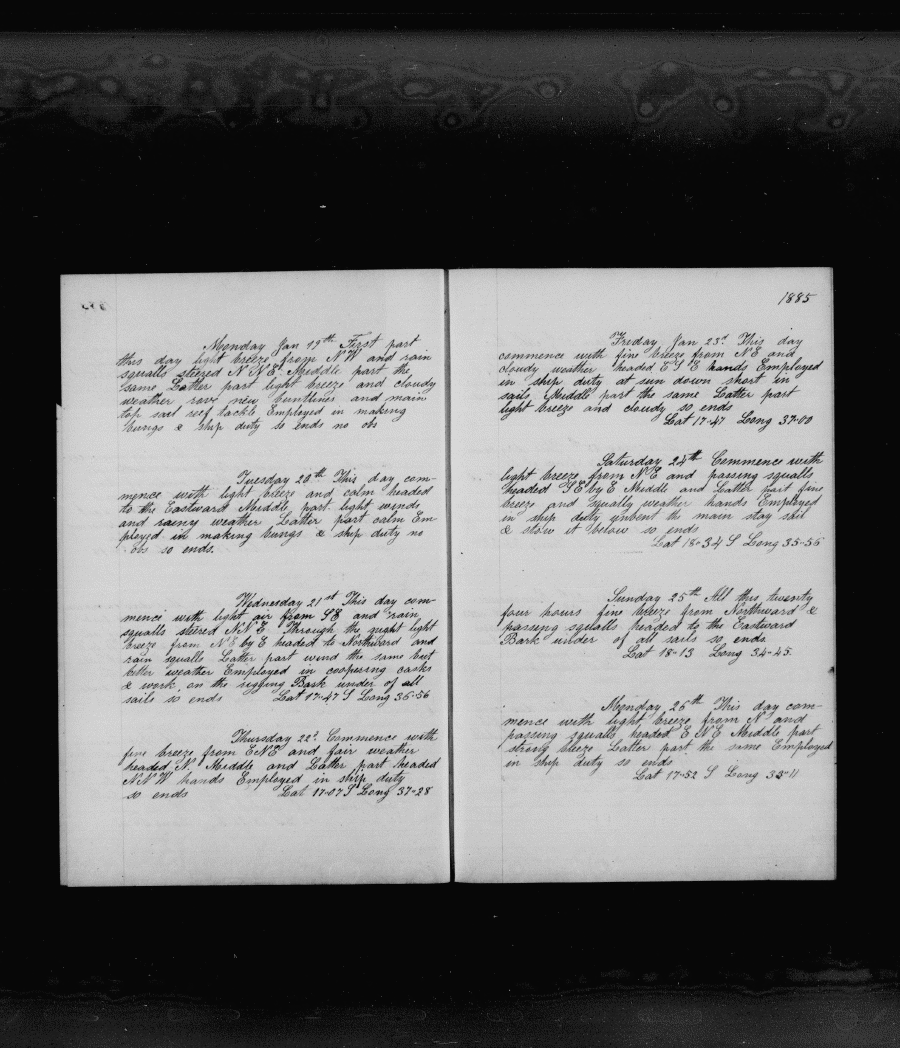 Monday Jan 19th First part
this day light breeze from N W and rain
squalls steered N N E. Middle part the
same Latter part light breeze and cloudy
weather rove new buntlines and main
top sail reef tackle Employed in making
bungs & ship duty so ends no obs
Tuesday 20th This day com-
mence with light breeze and calm headed
to the Eastward Middle part light winds
and raeny weather Latter part calm Em
ployed in making bungs & ship duty no
obs so ends.
Wednesday 21st This day com-
mence with light air from SE and rain
squalls steered N N E Through the night light
breeze from N E by E headed to Northward and
rain squalls Latter part wind the same but
better weather Employed in coopering casks
& work on the rigging Bark under of all
sails so ends Lat 17-47 S Long 36-56
Thursday 22d Commence with
fine breeze from ENE and fair weather
headed N. Middle and Latter part headed
N N W hands Employed in ship duty
so ends Lat 17-07 S Long 37-28
1885
Friday Jan 23d This day
commence with fine breeze from N E and
cloudy weather headed E S E hands Employed
in ship duty at sun down short in
sails Middle part the same Latter part
light breeze and cloudy so ends
Lat 17-47 Long 37-00
Saturday 24th Commence with
light breeze from N E and passing squalls
headed S E by E Middle and Latter part fine
breeze and squally weather hands Employed
in ship duty unbent the main stay sail
& stow it below so ends
Lat 18-34 S Long 35-56
Sunday 25th All this twenty
four hours fine breeze from Northward &
passing squalls headed to the Eastward
Bark under of all sails so ends
Lat 18-13 Long 34-45
Monday 26th This day com-
mence with light breeze from N and
passing squalls headed E N E Middle part
strong breeze Latter part the same Employed
in ship duty so ends
Lat 17-52 S Long 33-11